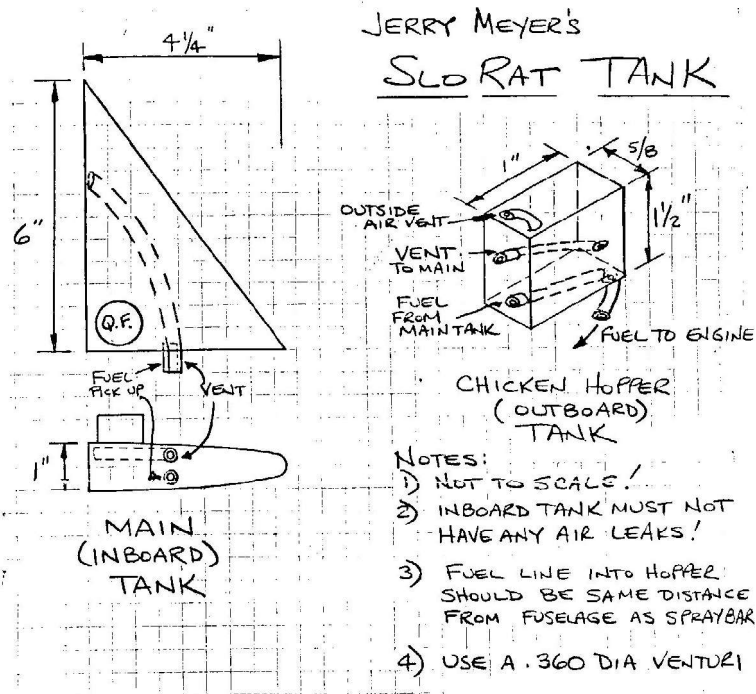 JERRY MEYER'S
SLO RAT TANK
4 1/4"
6"
Q.F.
FUEL
PICK UP
VENT
1"
MAIN
(INBOARD)
TANK
1"
5/8
1 1/2"
OUTSIDE
AIR VENT
VENT
TO MAIN
FUEL
FROM
MAIN TANK
FUEL TO ENGINE
CHICKEN HOPPER
(OUTBOARD)
TANK
NOTES:
1) NOT TO SCALE!
2) INBOARD TANK MUST NOT
HAVE ANY AIR LEAKS!
3) FUEL LINE INTO HOPPER
SHOULD BE SAME DISTANCE
FROM FUSELAGE AS SPRAYBAR
4) USE A .360 DIA VENTURI